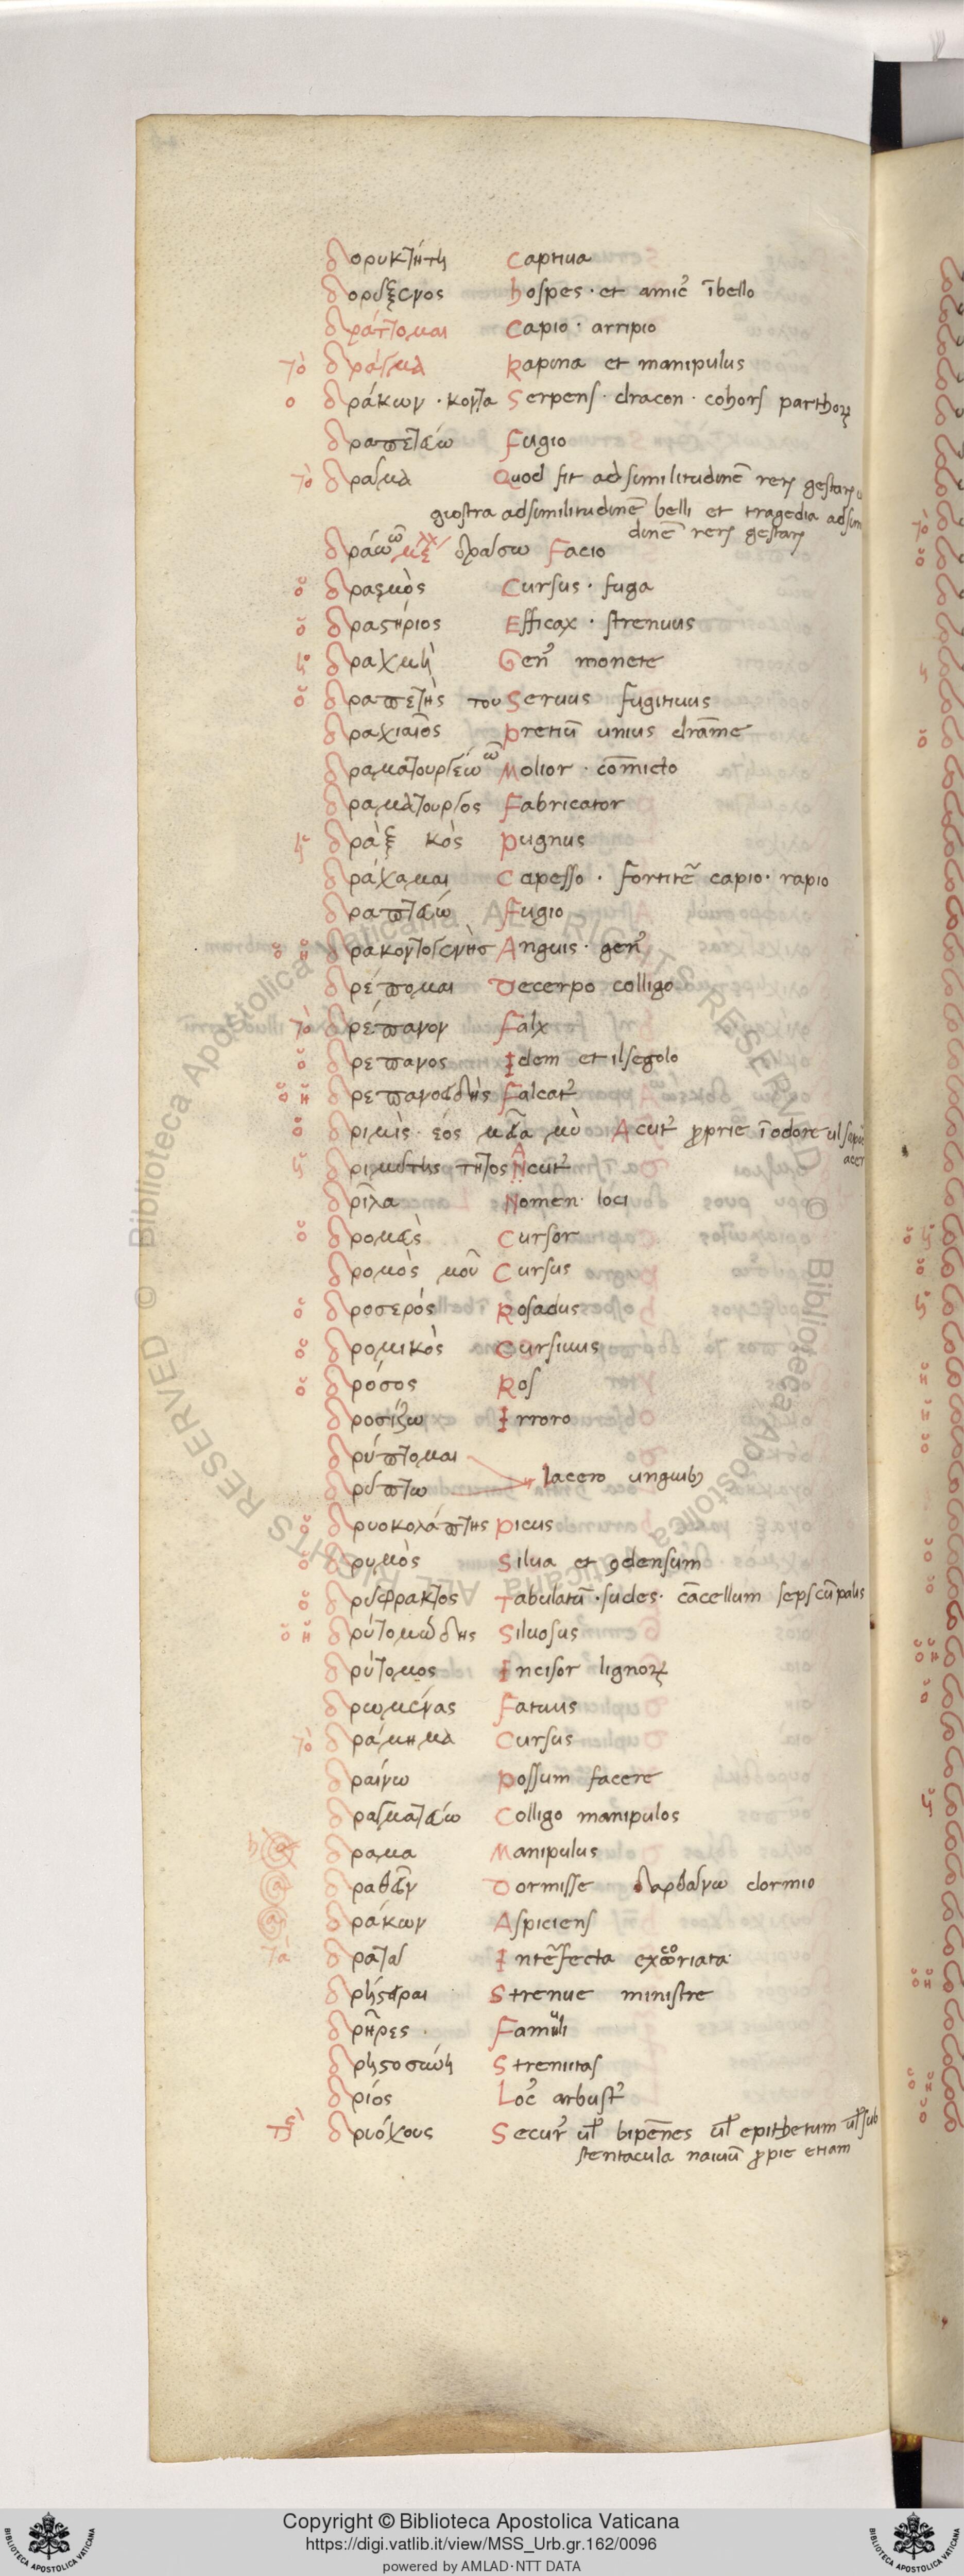 δορυκτήτη Captiua
δορύξενος hospes · et amic᾽ ībello
δράττομαι Capio · arripio
τὸ δράγμα Rapina et manipulus
ὁ δράκων · κοντα Serpens · dracon · cohors parthoꝝ
δραπετεύω Fugio
τὸ δράμα Quod fit ad similitudinē reꝝ gestaꝝ
giostra adsimilitudinē belli et tragedia adsim
dinē reꝝ gestaꝝ
δράω δρασω Facio
ὁ δρασμὸς Cursus · fuga
ὁ δραστήριος Efficax · strenuus
ἡ δραχμὴ Gen᾽ monete
ὁ δραπέτης του Seruus fugitiuus
δραχιαῖος pretiū unius drāme
δραματουργέω ῶ Molior · cōmicto
δραματουργος Fabricator
ἡ δρὰξ κὸς pugnus
δράχαμαι Capesso · fortit᷑ capio · rapio
δραπτεύω Fugio
ὁ ἡ δρακοντογενὴσ Anguis · gen᾽
δρέπομαι Decerpo colligo
τὸ δρέπανον Falx
ὁ δρεπανος Idem et ilsegolo
ὁ ἡ δρεπανοειδὴς Falcat᾽
ὁ δριμὺς · έος μεῖα μὺ Acut᾽ ꝓprie ī odore ul sapo
acer
ἡ δριμύτης τητος Acut᾽
δρῖλα Nomen loci
ὁ δρομεὺς Cursor
δρομὸς μοῦ Cursus
ὁ δροσερός Rosadus
ὁ δρομικὸς Cursiuus
ὁ δρόσος Ros
δροσίζω Irroro
δρύπτομαι
δρύπτω lacero unguibꝫ
ὁ δρυοκολάπτης picus
ὁ δρυμὸς Silua et ꝯdensum
ὁ δρύφρακτος Tabulatū · sudes · cācellum seps cū palis
ὁ ἡ δρυτομώδης Siluosus
δρύτομος Incisor lignoꝝ
δρωμένας Fatuus
τὸ δράμημα Cursus
δραίνω possum facere
δραγματεύω Colligo manipulos
δραμα Manipulus
δραθεῖν Dormisse δαρθαίνω dormio
δράκων Aspiciens
τὰ δρατα Int᷑fecta excoriata
δρήστειραι Strenue ministre
δρῆρες Famuli
δρηστοσύνη Strenuitas
δρίός Loc᾽ arbust᾽
δρυόχους Secur᾽ ul᷑ bipēnes ul᷑ epithetum ul᷑ sub
stentacula nauiū ꝓpie etiam
Copyright © Biblioteca Apostolica Vaticana
https://digi.vatlib.it/view/MSS_Urb.gr.162/0096
powered by AMLAD·NTT DATA